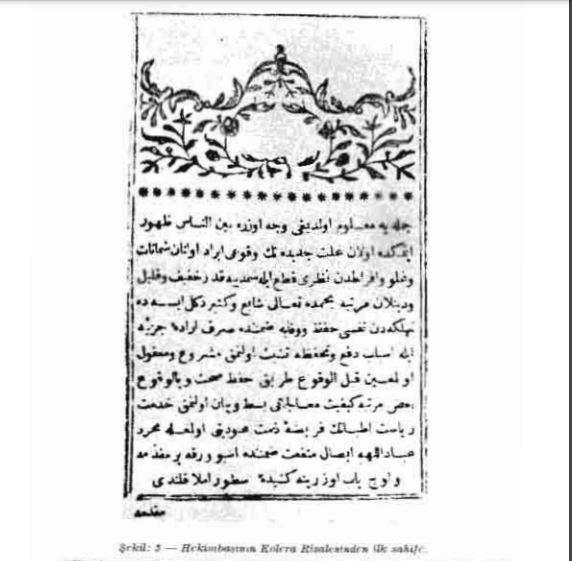 جمله يه معلوم اولديغى وجه اوزره بين الناس ظهور
ايتمكده اولان علت جديده نك وقوعى ايراد اولنان شماتات
وغلو وافراطدن نظرى قطع ايله سنديسه قدر خفيف وقليل
ودينلان مرتبه بحمده تعالى شايع وكثير دكل ايسه ده
مهلكه دن نفسى حفظ ووقايه ضمننده صرف اراده جزئيه
ايله اسباب دفع وتحفظه تشبث اولنمق مشروع ومعقول
اولمغين قبل الوقوع طريق حفظ صحت وبالوقوع
بعض مرتبه كيفيت معالجاتى بسط وبيان اولنمق خدمت
رياست اطبانك فريضه ذمت عبوديتى اولمغله مجرد
عباداللهه ايصال منفعت ضمننده اشبو ورقه بر مقدمه
واوج باب اوزرينه كشيده سطور املا قلندى
مقدمه
Şekil: 5 — Hekimbaşının Kolera Risalesinden ilk sahife.